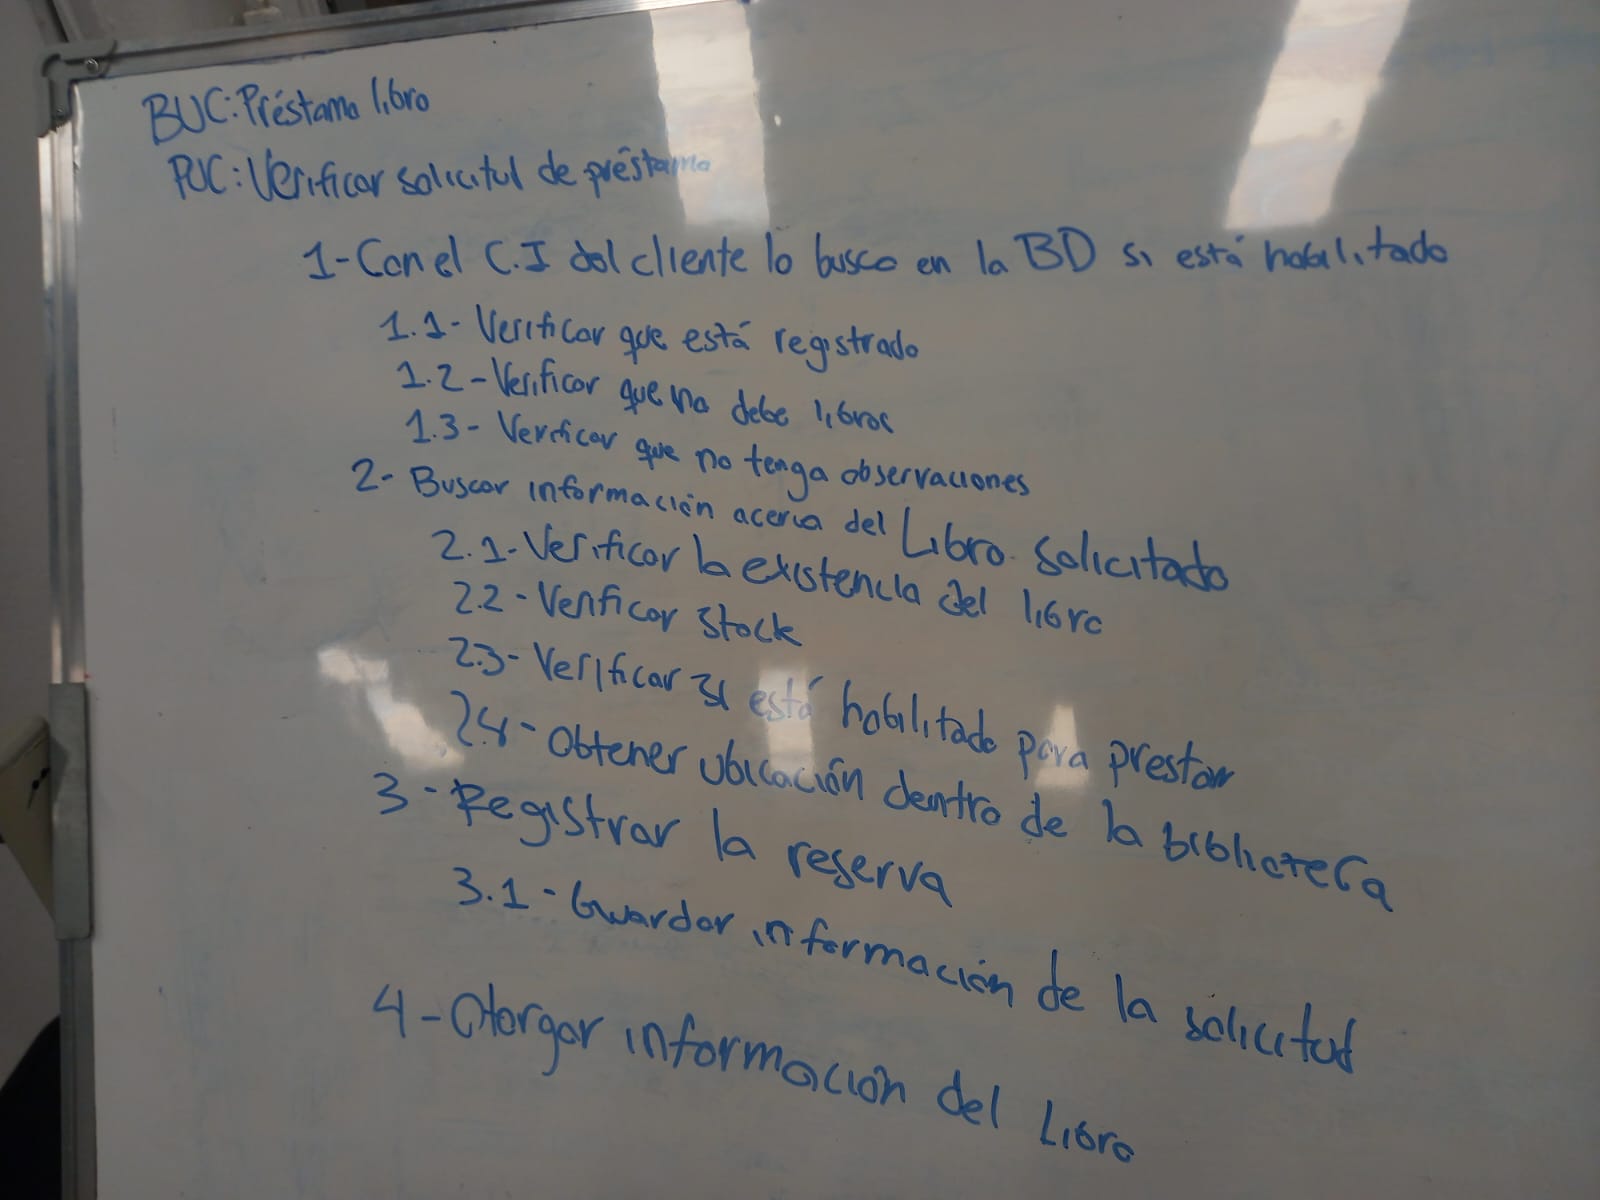 BUC: Préstamo libro
PUC: Verificar solicitud de préstamo
1- Con el C.I del cliente lo busco en la BD si está habilitado
1.1- Verificar que está registrado
1.2- Verificar que no debe libros
1.3- Verificar que no tenga observaciones
2- Buscar información acerca del Libro solicitado
2.1- Verificar la existencia del libro
2.2- Verificar stock
2.3- Verificar si está habilitado para prestar
2.4- Obtener ubicación dentro de la biblioteca
3- Registrar la reserva
3.1- Guardar información de la solicitud
4- Otorgar información del Libro